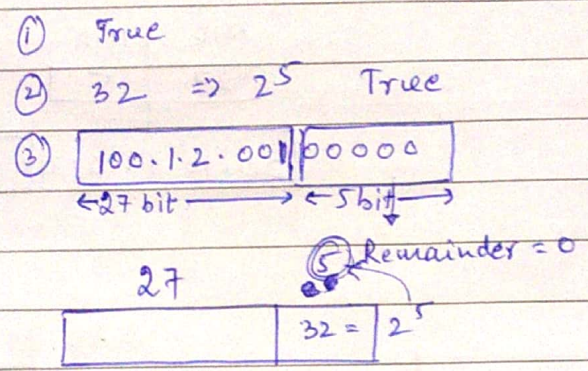 ① True
② 32 ⇒ 2⁵ True
③ 100.1.2.001 00000
←27 bit→ ←5bit→
27 5 Remainder = 0
32 = 2⁵